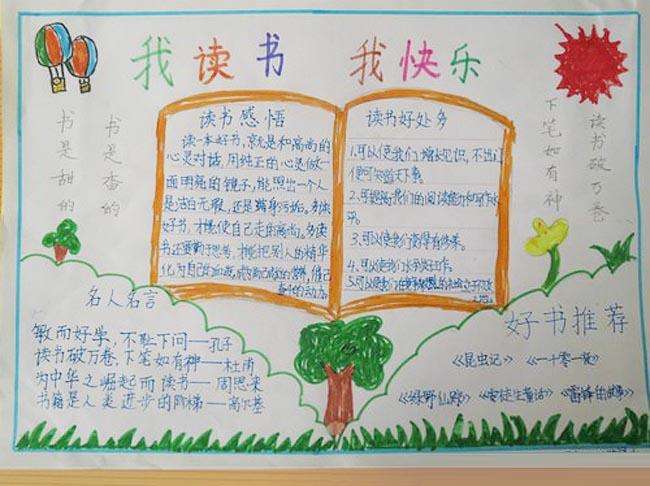 我读书 我快乐
书是甜的
书是香的
读书破万卷
下笔如有神
读书感悟
读一本好书，就是和高尚的
心灵对话，用纯正的心灵做一
面明亮的镜子，能照出一个人
是洁白无瑕，还是满身污垢。多读
好书，才能使自己走向高尚。多读
书还要勤于思考，才能把别人的精华
化为自己的血液，成为自己的营养，催己
奋进的动力。
读书好处多
1.可以使我们增长见识，不出门
便可知道天下事。
2.可提高我们的阅读能力和写作水
平。
3.可以使我们变得有修养。
4.可以使我们
5.可以使我们
名人名言
敏而好学，不耻下问——孔子
读书破万卷，下笔如有神——杜甫
为中华之崛起而读书——周恩来
书籍是人类进步的阶梯——高尔基
好书推荐
《昆虫记》 《一千零一夜》
《绿野仙踪》 《安徒生童话》 《雷锋的故事》